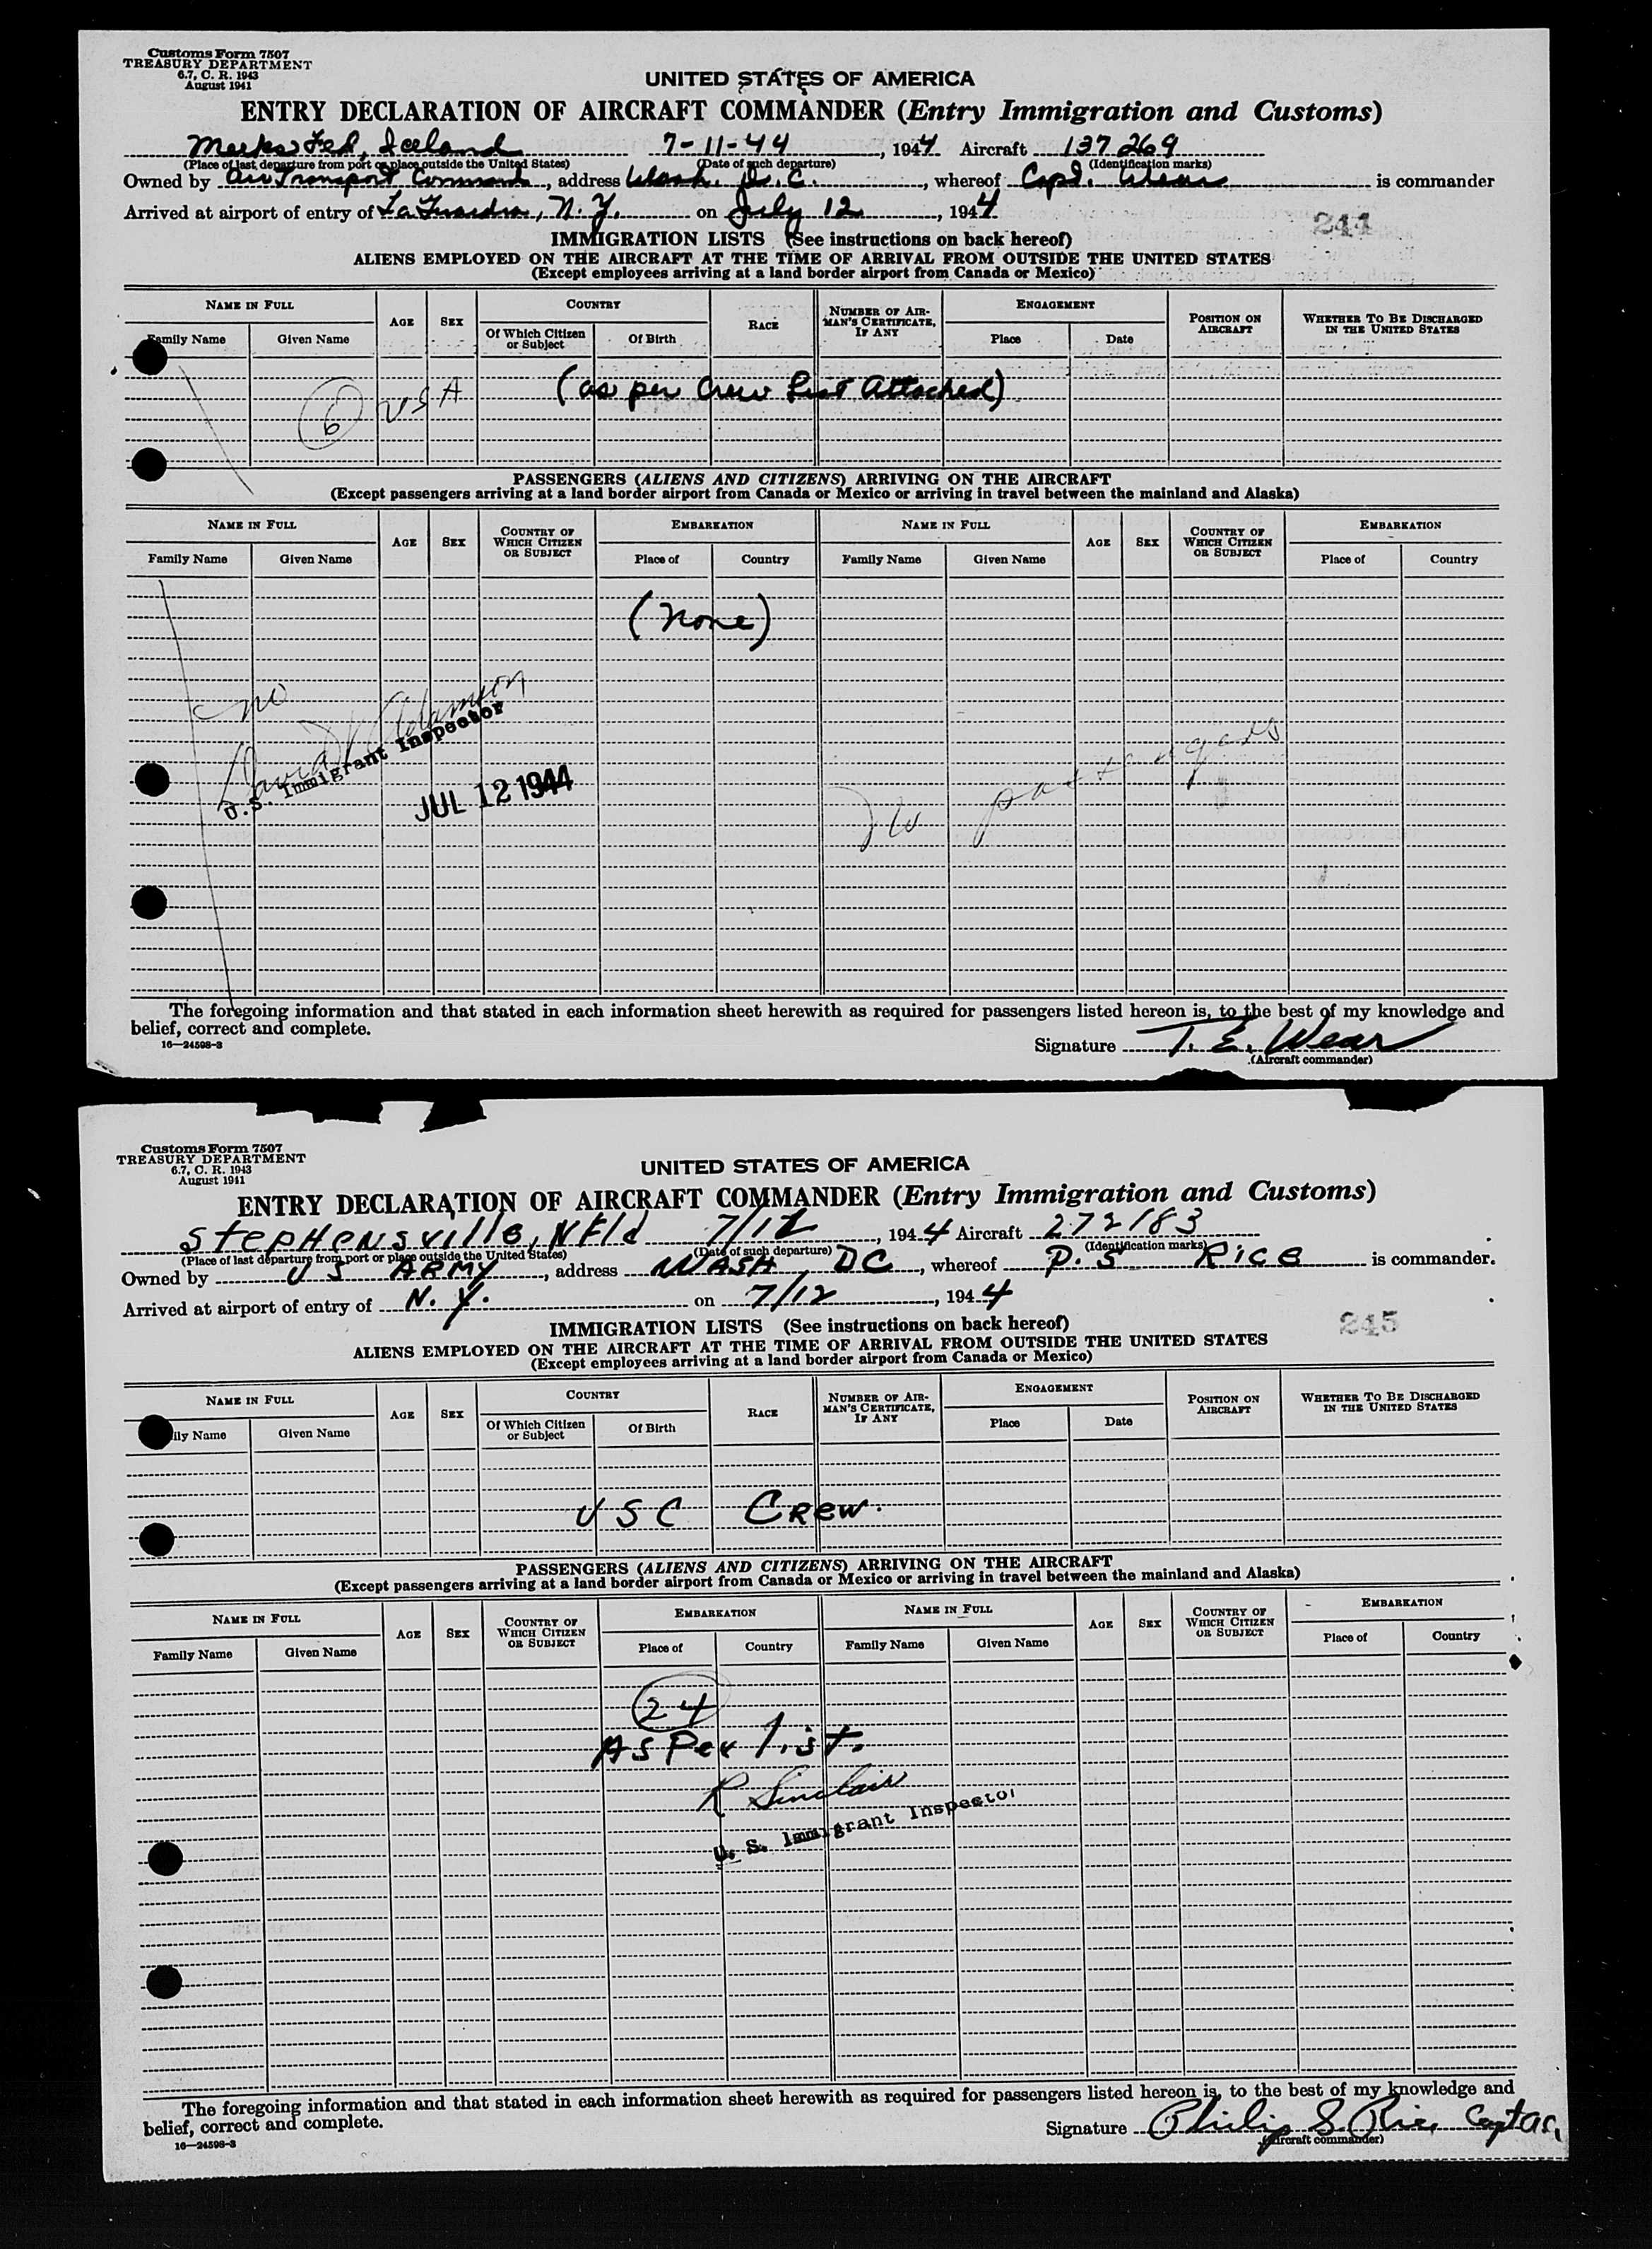 Customs Form 7507
TREASURY DEPARTMENT
6.7, C. R. 1943
August 1941
UNITED STATES OF AMERICA
ENTRY DECLARATION OF AIRCRAFT COMMANDER (Entry Immigration and Customs)
Meeks Fld, Iceland 7-11-44, 1944 Aircraft 137269
(Place of last departure from port or place outside the United States) (Date of such departure) (Identification marks)
Owned by Air Transport Command, address Wash. D.C., whereof Capt. Wear is commander
Arrived at airport of entry of La Guardia, N.Y. on July 12, 1944
244
IMMIGRATION LISTS (See instructions on back hereof)
ALIENS EMPLOYED ON THE AIRCRAFT AT THE TIME OF ARRIVAL FROM OUTSIDE THE UNITED STATES
(Except employees arriving at a land border airport from Canada or Mexico)
NAME IN FULL AGE SEX COUNTRY RACE NUMBER OF AIRMAN'S CERTIFICATE, IF ANY ENGAGEMENT POSITION ON AIRCRAFT WHETHER TO BE DISCHARGED IN THE UNITED STATES
Family Name Given Name Of Which Citizen or Subject Of Birth Place Date
6 USA (as per Crew List Attached)
PASSENGERS (ALIENS AND CITIZENS) ARRIVING ON THE AIRCRAFT
(Except passengers arriving at a land border airport from Canada or Mexico or arriving in travel between the mainland and Alaska)
NAME IN FULL AGE SEX COUNTRY OF WHICH CITIZEN OR SUBJECT EMBARKATION NAME IN FULL AGE SEX COUNTRY OF WHICH CITIZEN OR SUBJECT EMBARKATION
Family Name Given Name Place of Country Family Name Given Name Place of Country
(None)
no
David Adamson
U.S. Immigrant Inspector
JUL 12 1944
No passengers
The foregoing information and that stated in each information sheet herewith as required for passengers listed hereon is, to the best of my knowledge and
belief, correct and complete.
16—24598-3
Signature T. E. Wear
(Aircraft commander)
Customs Form 7507
TREASURY DEPARTMENT
6.7, C. R. 1943
August 1941
UNITED STATES OF AMERICA
ENTRY DECLARATION OF AIRCRAFT COMMANDER (Entry Immigration and Customs)
Stephensville, Nfld 7/12, 1944 Aircraft 272183
(Place of last departure from port or place outside the United States) (Date of such departure) (Identification marks)
Owned by US ARMY, address WASH DC, whereof P. S Rice is commander.
Arrived at airport of entry of N. Y. on 7/12, 1944
245
IMMIGRATION LISTS (See instructions on back hereof)
ALIENS EMPLOYED ON THE AIRCRAFT AT THE TIME OF ARRIVAL FROM OUTSIDE THE UNITED STATES
(Except employees arriving at a land border airport from Canada or Mexico)
NAME IN FULL AGE SEX COUNTRY RACE NUMBER OF AIRMAN'S CERTIFICATE, IF ANY ENGAGEMENT POSITION ON AIRCRAFT WHETHER TO BE DISCHARGED IN THE UNITED STATES
ily Name Given Name Of Which Citizen or Subject Of Birth Place Date
USC Crew.
PASSENGERS (ALIENS AND CITIZENS) ARRIVING ON THE AIRCRAFT
(Except passengers arriving at a land border airport from Canada or Mexico or arriving in travel between the mainland and Alaska)
NAME IN FULL AGE SEX COUNTRY OF WHICH CITIZEN OR SUBJECT EMBARKATION NAME IN FULL AGE SEX COUNTRY OF WHICH CITIZEN OR SUBJECT EMBARKATION
Family Name Given Name Place of Country Family Name Given Name Place of Country
24
As Per list.
R Sinclair
U. S. Immigrant Inspector
The foregoing information and that stated in each information sheet herewith as required for passengers listed hereon is, to the best of my knowledge and
belief, correct and complete.
16—24598-3
Signature Philip S. Rice Capt AC.
(Aircraft commander)